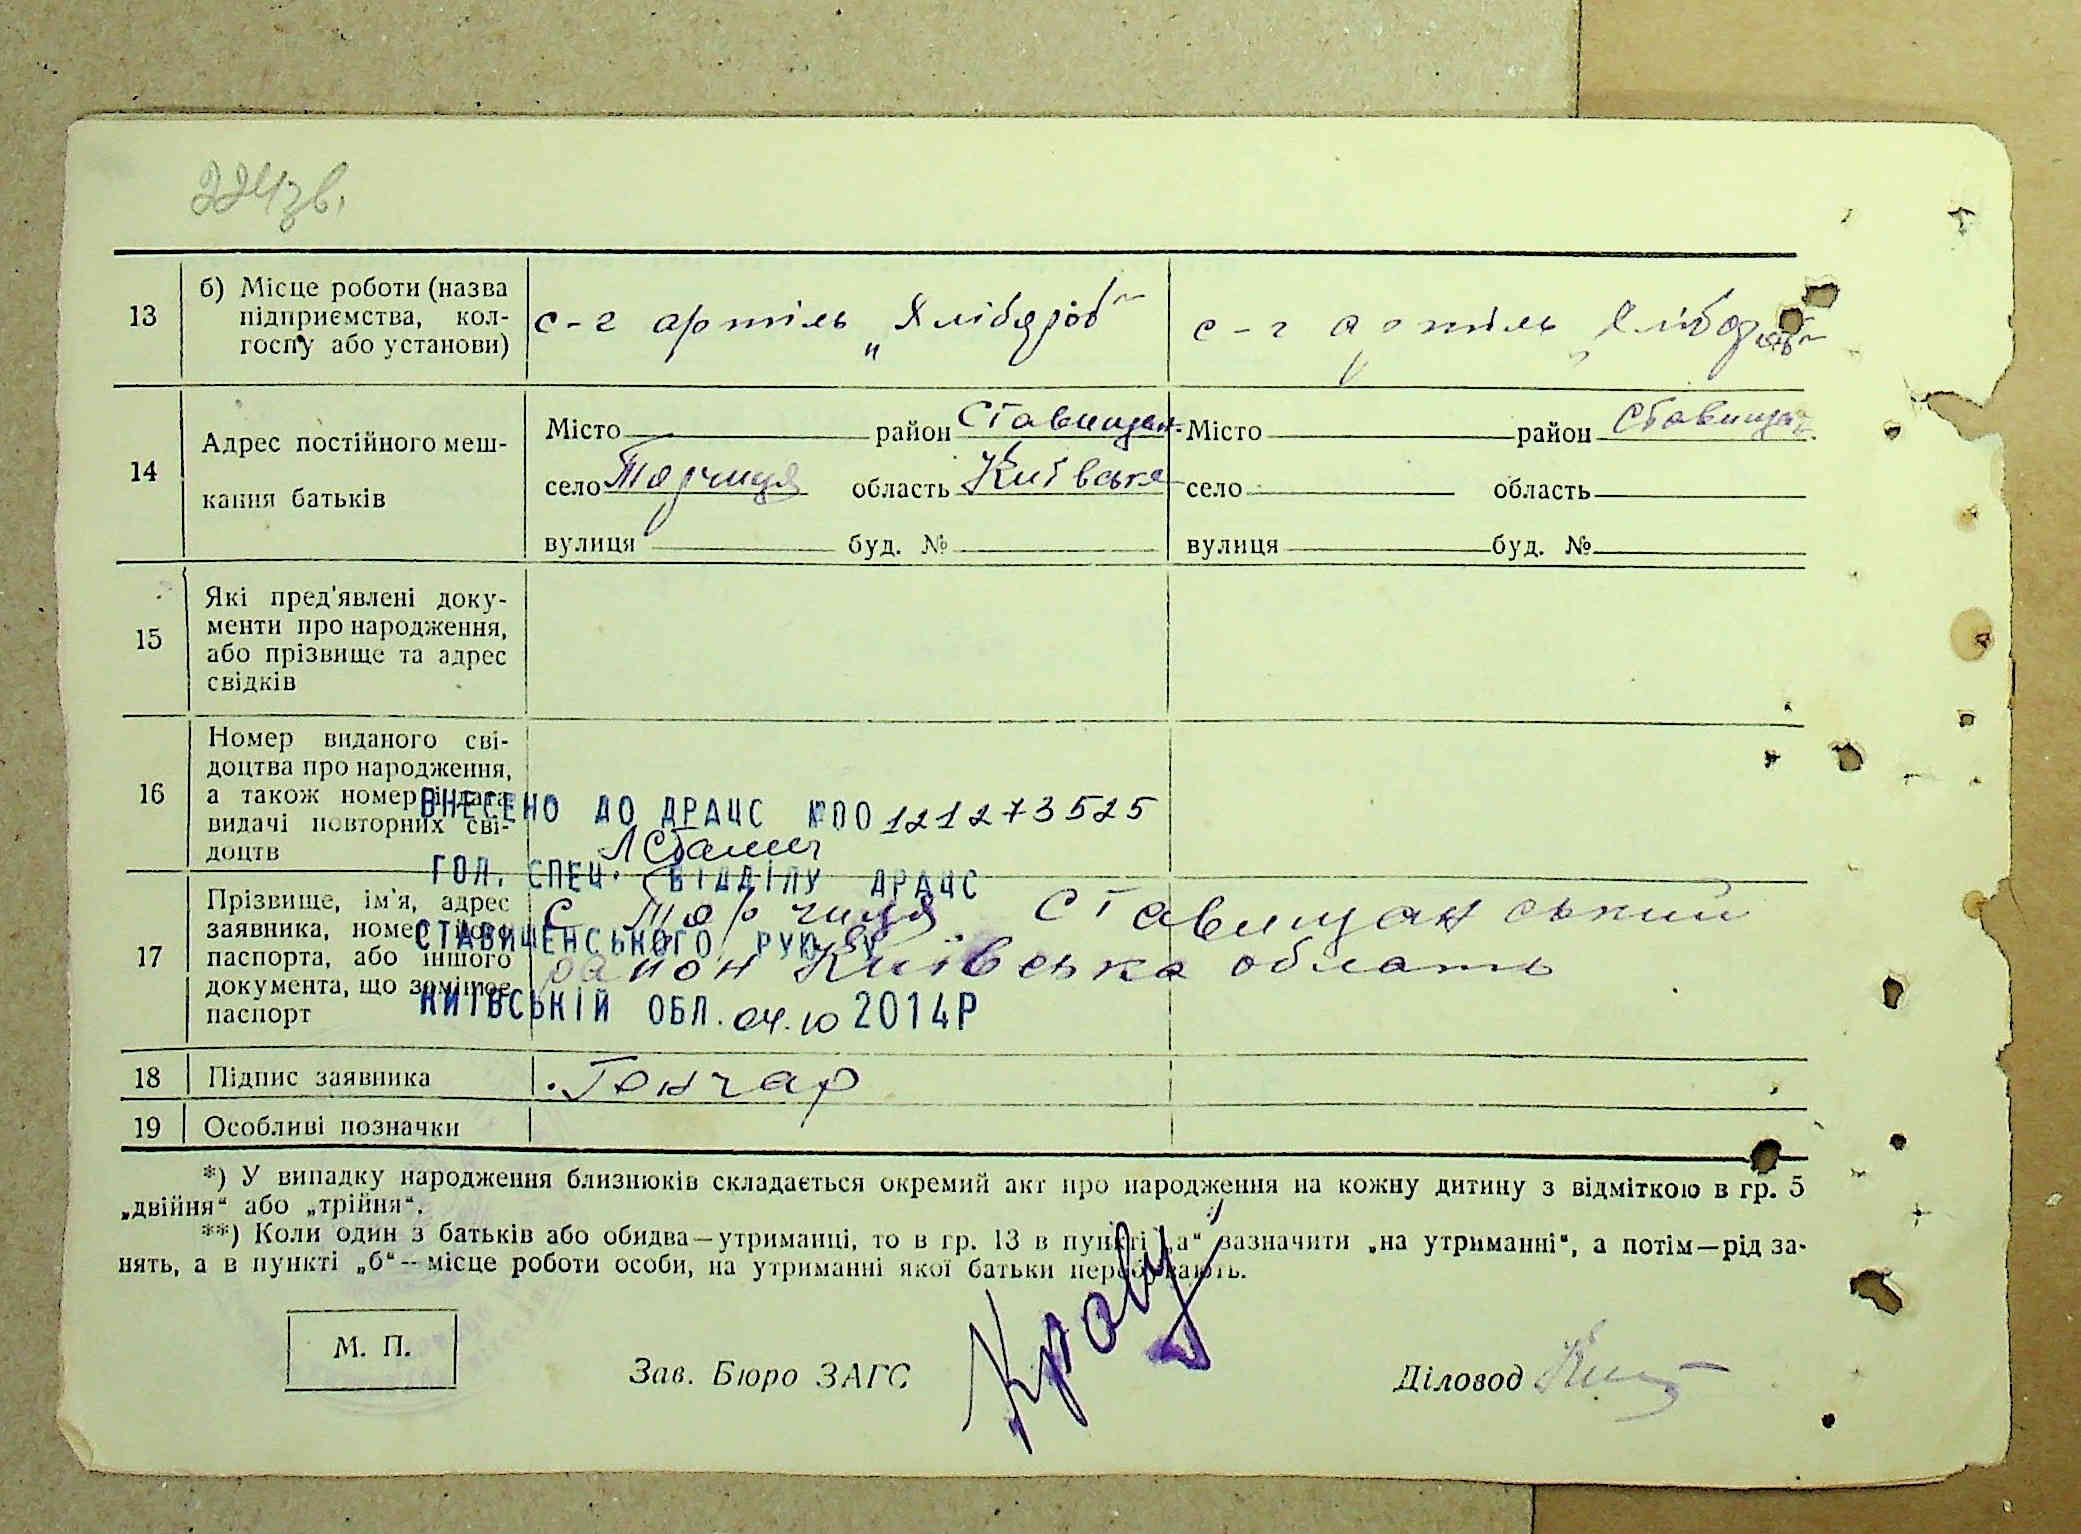 224зв.
13 б) Місце роботи (назва підприємства, кол-госпу або установи) с-г артіль „Хлібороб" с-г артіль „Хлібороб"
14 Адрес постійного меш-кання батьків
Місто район Ставищан. Місто район Ставищан.
село Торчиця область Київська село область
вулиця буд. № вулиця буд. №
15 Які пред'явлені доку-
менти про народження,
або прізвище та адрес
свідків
16 Номер виданого сві-
доцтва про народження,
а також номер і дата
видачі повторних сві-
доцтв
ВНЕСЕНО ДО ДРАЦС №00121273525
ГОЛ. СПЕЦ. ВІДДІЛУ ДРАЦС
СТАВИЩЕНСЬКОГО РУЮ У
КИЇВСЬКІЙ ОБЛ. 04.10 2014Р
17 Прізвище, ім'я, адрес
заявника, номер його
паспорта, або іншого
документа, що замінює
паспорт
с. Торчиця Ставищанський
район Київська область
18 Підпис заявника Гончар
19 Особливі позначки
*) У випадку народження близнюків складається окремий акт про народження на кожну дитину з відміткою в гр. 5
„двійня“ або „трійня“.
**) Коли один з батьків або обидва—утриманці, то в гр. 13 в пункті „а“ зазначити „на утриманні“, а потім—рід за-
нять, а в пункті „б“—місце роботи особи, на утриманні якої батьки перебувають.
М. П.
Зав. Бюро ЗАГС
Діловод